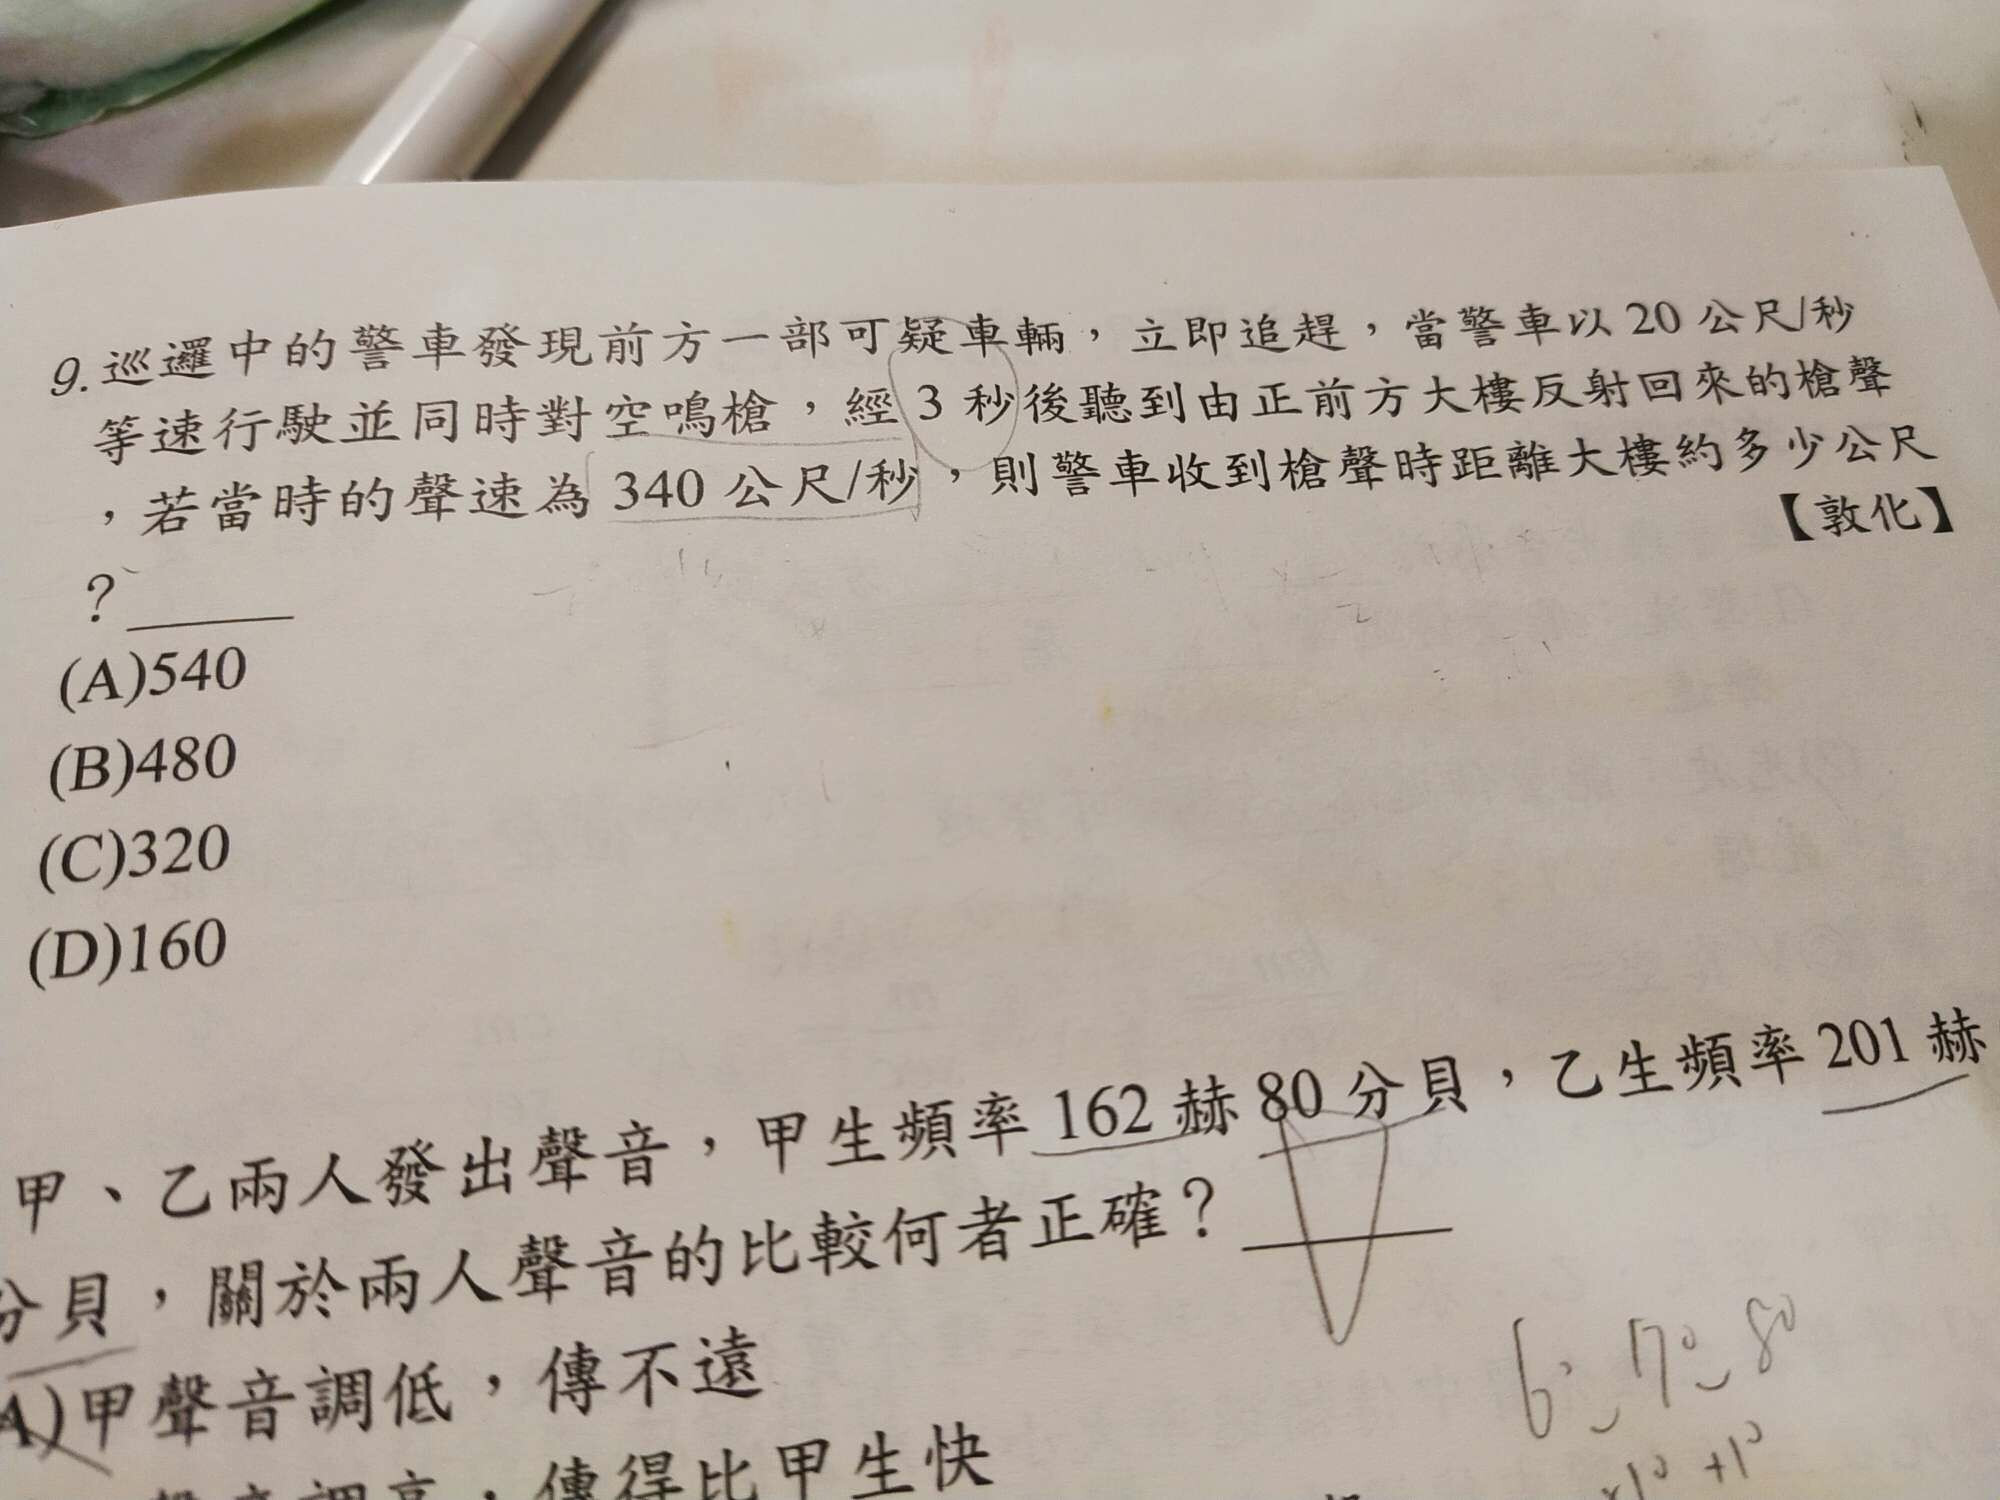 9.巡邏中的警車發現前方一部可疑車輛，立即追趕，當警車以20公尺/秒
等速行駛並同時對空鳴槍，經3秒後聽到由正前方大樓反射回來的槍聲
，若當時的聲速為340公尺/秒，則警車收到槍聲時距離大樓約多少公尺
？
【敦化】
(A)540
(B)480
(C)320
(D)160
甲、乙兩人發出聲音，甲生頻率162赫80分貝，乙生頻率201赫
分貝，關於兩人聲音的比較何者正確？
A)甲聲音調低，傳不遠
聲音調高，傳得比甲生快